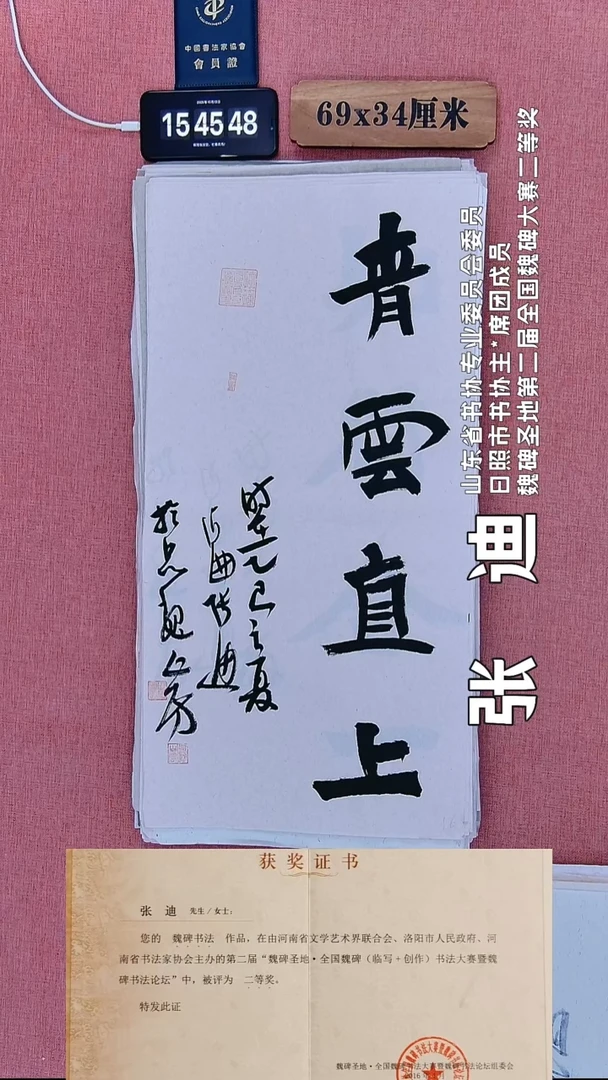 中國書法家協會
會員證
15 45 48
69x34厘米
青雲直上
時在乙巳之夏
张迪
山东省书协专业委员会委员
日照市书协主*席团成员
魏碑圣地第二届全国魏碑大赛二等奖
张 迪
获奖证书
张 迪 先生/女士:
您的 魏碑书法 作品，在由河南省文学艺术界联合会、洛阳市人民政府、河
南省书法家协会主办的第二届“魏碑圣地·全国魏碑（临写+创作）书法大赛暨魏
碑书法论坛”中，被评为 二等奖。
特发此证
魏碑圣地·全国魏碑书法大赛暨魏碑书法论坛组委会